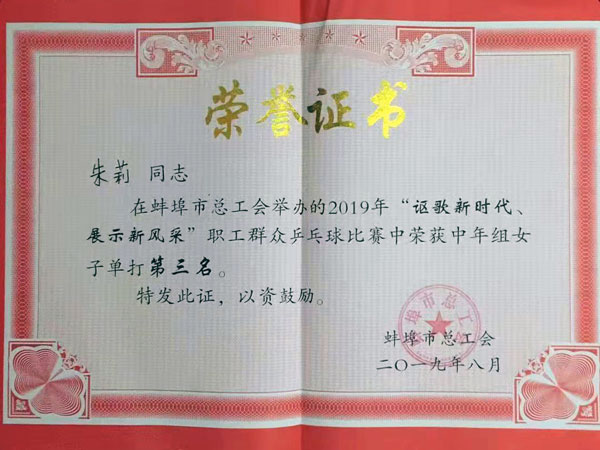 荣誉证书
朱莉 同志
在蚌埠市总工会举办的2019年“讴歌新时代、
展示新风采”职工群众乒乓球比赛中荣获中年组女
子单打第三名。
特发此证，以资鼓励。
蚌埠市总工会
蚌埠市总工会
二〇一九年八月